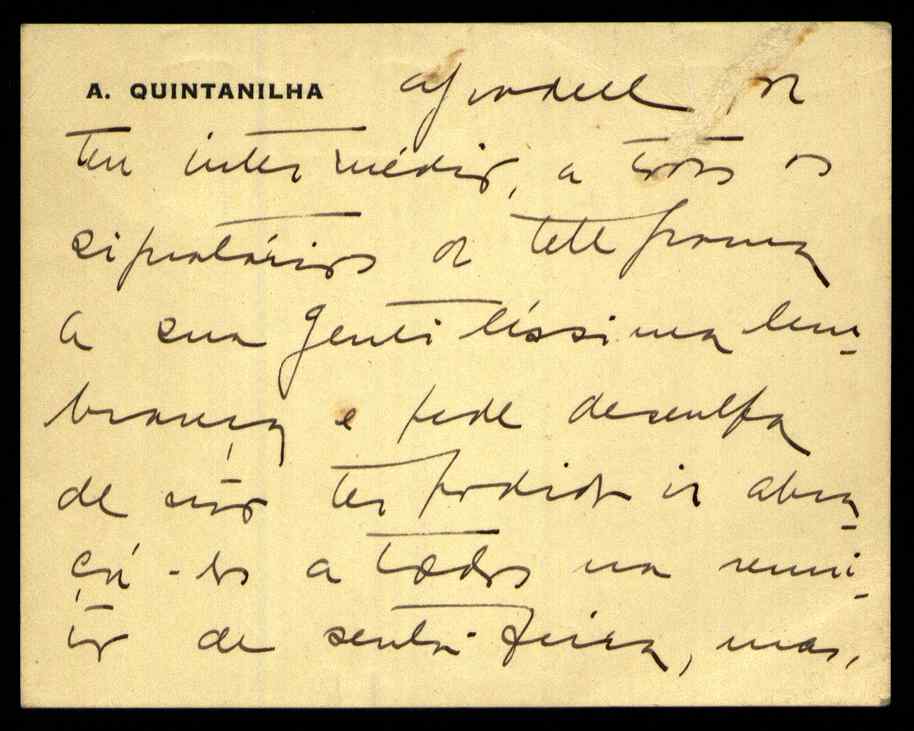 A. QUINTANILHA agradece, por
teu intermédio, a todos os
signatários do telegrama
a sua gentilíssima lem-
brança e pede desculpa
de não ter podido ir abra-
çá-los a todos na reuni-
ão de sexta-feira, mas,